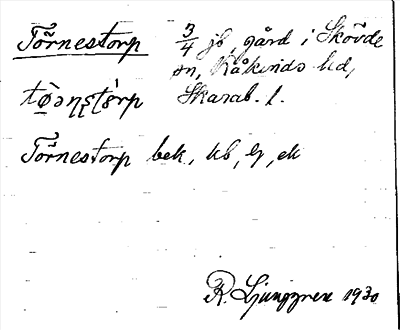 Törnestorp 3/4 jb, gård i Skövde
sn, Kåkinds hd,
Skarab. l.
Törnestorp bek, kb, Lg, ek
R. Ljunggren 1930